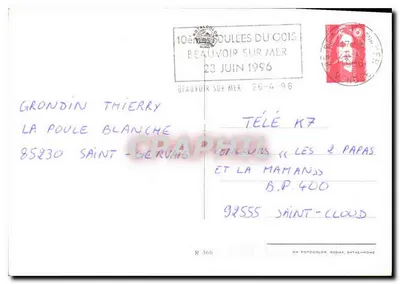 10èmes FOULÉES DU GOIS
BEAUVOIR SUR MER
23 JUIN 1996
BEAUVOIR SUR MER 26-4-96
GRONDIN THIERRY
LA POULE BLANCHE
85230 SAINT-GERVAIS
TÉLÉ K7
« LES 2 PAPAS
ET LA MAMAN »
B.P 400
92555 SAINT-CLOUD